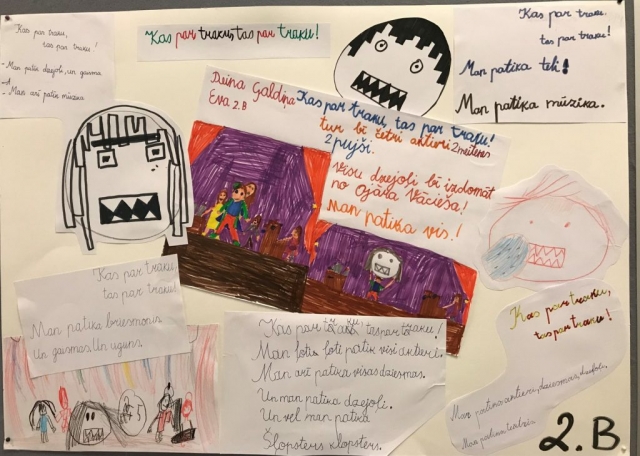 Kas par traku,
tas par traku!
- Man patik dzejoļi, un gaisma
- A
- Man arī patik mūzika.
Kas par traku, tas par traku!
Kas par traku,
tas par traku!
Man patika teli!
Man patika mūzika.
Daina Galdiņa
Eva 2.B
Kas par traku, tas par traku!
tur bi četri aktieri 2 meitenes
2 puiši.
Visu dzejoli bi izdomāt
no Ojāra Vācieša!
Man patika vis!
Kas par traku,
tas par traku!
Man patika briesmonis
Un gaismas. Un uguns.
Kas par traku, tas par traku!
Man ļoti ļoti patik visi aktieri.
Man arī patika visas dziesmas.
Un man patika dzejoli.
Un vel man patika
Šlopsters klopsters.
Kas par traku,
tas par traku!
Man patika aktieri, dziesmas,
Man patika
2.B